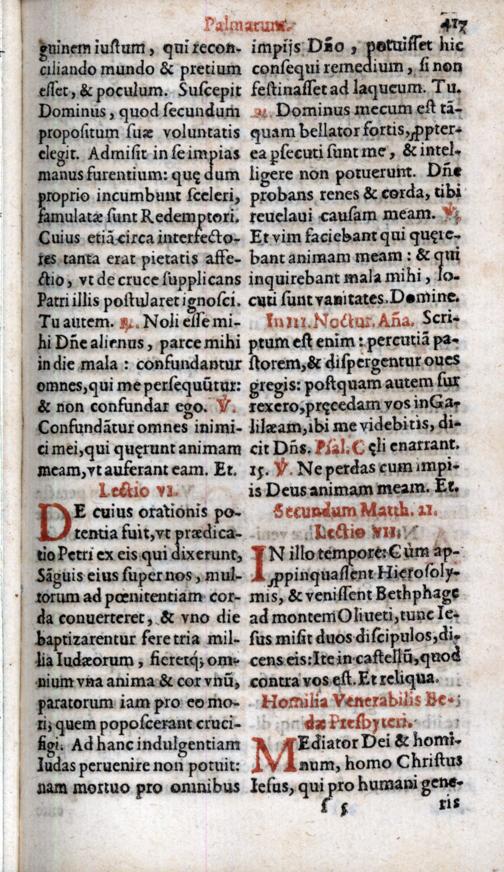 Palmarum.
417
guinem iustum, qui recon-
ciliando mundo & pretium
esset, & poculum. Suscepit
Dominus, quod secundum
propositum suæ voluntatis
elegit. Admisit in se impias
manus furentium: quę dum
proprio incumbunt sceleri,
famulatæ sunt Redemptori.
Cuius etiã circa interfecto-
res tanta erat pietatis affe-
ctio, vt de cruce supplicans
Patri illis postularet ignosci.
Tu autem. ℟. Noli esse mi-
hi Dñe alienus, parce mihi
in die mala: confundantur
omnes, qui me persequũtur:
& non confundar ego. ℣.
Confundãtur omnes inimi-
ci mei, qui quęrunt animam
meam, vt auferant eam. Et.
Lectio VI.
DE cuius orationis po-
tentia fuit, vt prædica-
tio Petri ex eis qui dixerunt,
Sãguis eius super nos, mul-
torum ad pœnitentiam cor-
da conuerteret, & vno die
baptizarentur fere tria mil-
lia Iudæorum, fieretq; om-
nium vna anima & cor vnũ,
paratorum iam pro eo mo-
ri, quem poposcerant cruci-
figi. Ad hanc indulgentiam
Iudas peruenire non potuit:
nam mortuo pro omnibus
impijs Dño, potuisset hic
consequi remedium, si non
festinasset ad laqueum. Tu.
℟. Dominus mecum est tã-
quam bellator fortis, ꝓpter-
ea ꝑsecuti sunt me, & intel-
ligere non potuerunt. Dñe
probans renes & corda, tibi
reuelaui causam meam. ℣.
Et vim faciebant qui quęre-
bant animam meam: & qui
inquirebant mala mihi, lo-
cuti sunt vanitates. Domine.
In III. Noctur. Aña. Scri-
ptum est enim: percutiã pa-
storem, & dispergentur oues
gregis: postquam autem sur
rexero, pręcedam vos in Ga-
lilæam, ibi me videbitis, di-
cit Dñs. Psal. Cęli enarrant.
15. ℣. Ne perdas cum impi-
is Deus animam meam. Et.
Secundum Matth. 21.
Lectio VII.
IN illo tempore: Cùm ap-
ꝓpinquassent Hierosoly-
mis, & venissent Bethphage
ad montem Oliueti, tunc Ie-
sus misit duos discipulos, di-
cens eis: Ite in castellũ, quod
contra vos est. Et reliqua.
Homilia Venerabilis Be-
dæ Presbyteri.
MEdiator Dei & homi-
num, homo Christus
Iesus, qui pro humani gene-
ſ 5
ris